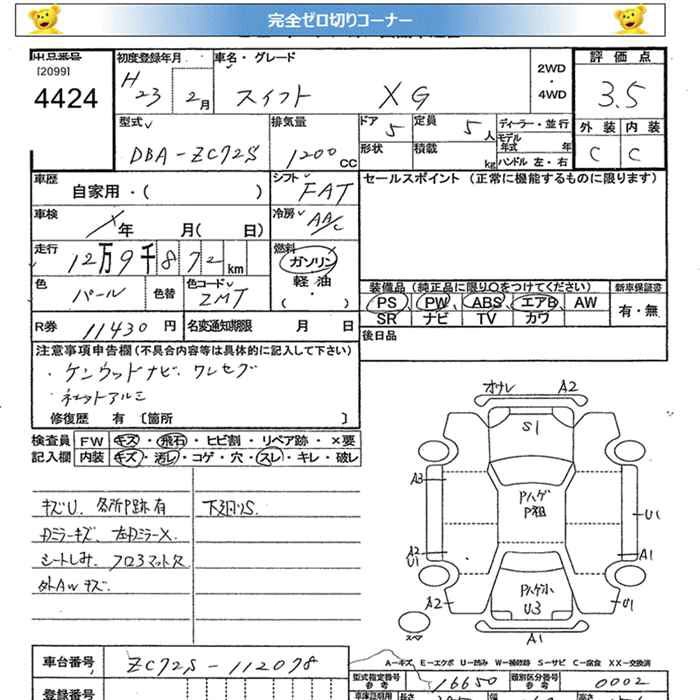 完全ゼロ切りコーナー
出品番号
[2099]
4424
初度登録年月
H 23 2月
車名・グレード
スイフト XG
2WD
・
4WD
評価点
3.5
外装 内装
C C
型式
DBA-ZC72S
排気量
1200 CC
ドア 5
定員 5人
形状
積載 kg
ディーラー・並行
モデル年式 年
ハンドル 左・右
車歴
自家用・( )
シフト
FAT
セールスポイント (正常に機能するものに限ります)
車検
年 月( 日)
冷房
AAC
走行
12万9千872 km
燃料
ガソリン
軽油
( ・ )
色
パール
色替
色コード
ZMT
装備品(純正品に限り○をつけてください)
新車保証書
PS PW ABS エアB AW
有・無
SR ナビ TV カワ
R券 11430 円
名変通知期限 月 日
後日品
注意事項申告欄(不具合内容等は具体的に記入して下さい)
・ケンウッドナビ、ワンセグ
ネットアルミ
修復歴 有 〔箇所 〕
検査員 FW キズ・飛石・ヒビ割・リペア跡・×要
記入欄 内装 キズ・汚レ・コゲ・穴・スレ・キレ・破レ
キズU、各所P跡有
下廻りS.
Dミラーキズ、左Dミラーx.
シートしみ、フロ3マットス
外AWキズ
オサレ A2
S1
A3
Pハゲ
P粗
U1
A2
U1
A1
A2
Pハゲ小
U3
U1
スペア
A1
A-キズ E-エクボ U-凹み W-補修跡 S-サビ C-腐食 XX-交換済
車台番号 ZC72S-112078
型式指定番号
参考
16650
類別区分番号
参考
0002
登録番号
車庫証明用
長さ